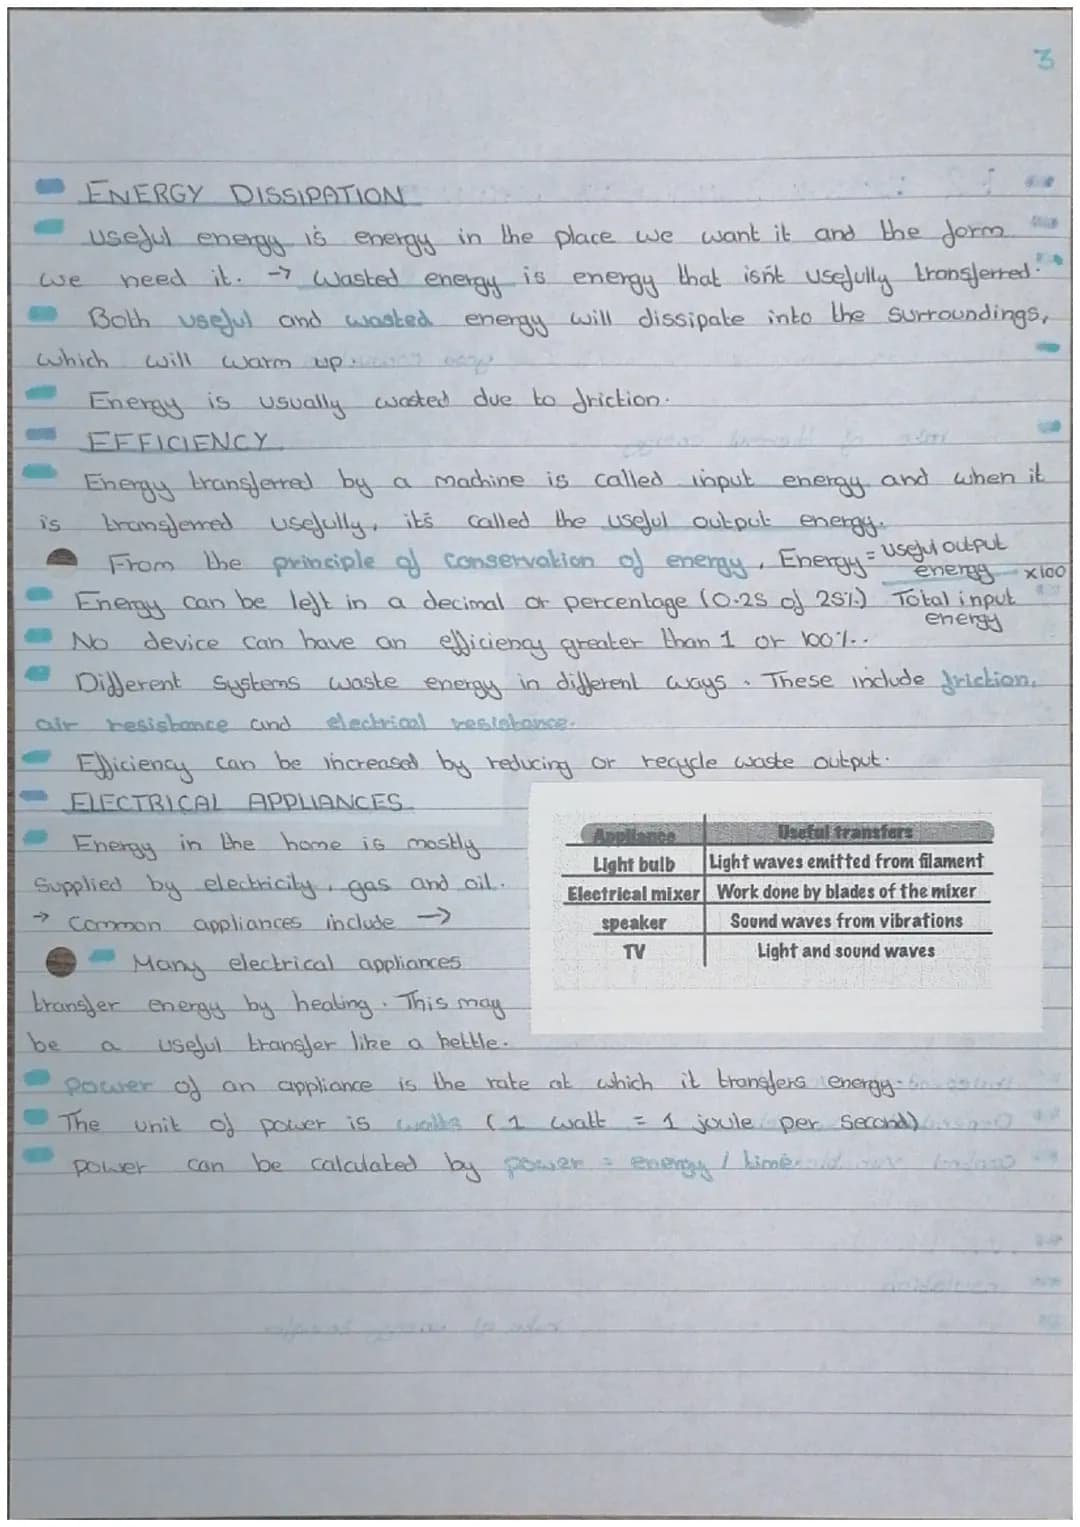 3
ENERGY DISSIPATION
Useful energy is energy in the place we want it and the form
we need it. → Wasted energy is energy that isn't usefully transferred.
Both useful and wasted energy will dissipate into the surroundings,
which will warm up.
Energy is usually wasted due to friction.
EFFICIENCY
Energy transferred by a machine is called input energy and when it
is transferred usefully, it's called the useful output energy.
From the principle of conservation of energy, Energy = useful output
energy x100
Energy can be left in a decimal or percentage (0.25 of 25%) Total input
energy
No device can have an efficiency greater than 1 or 100%.
Different systems waste energy in different ways. These include friction,
air resistance and electrical resistance.
Efficiency can be increased by reducing or recycle waste output.
ELECTRICAL APPLIANCES
Energy in the home is mostly
supplied by electricity, gas and oil.
→ Common appliances include →
Appliance Useful transfers
Light bulb Light waves emitted from filament
Electrical mixer Work done by blades of the mixer
speaker Sound waves from vibrations
TV Light and sound waves
Many electrical appliances
transfer energy by heating. This may
be a useful transfer like a kettle.
Power of an appliance is the rate at which it transfers energy.
The unit of power is watts (1 watt = 1 joule per second)
power can be calculated by power = energy / time